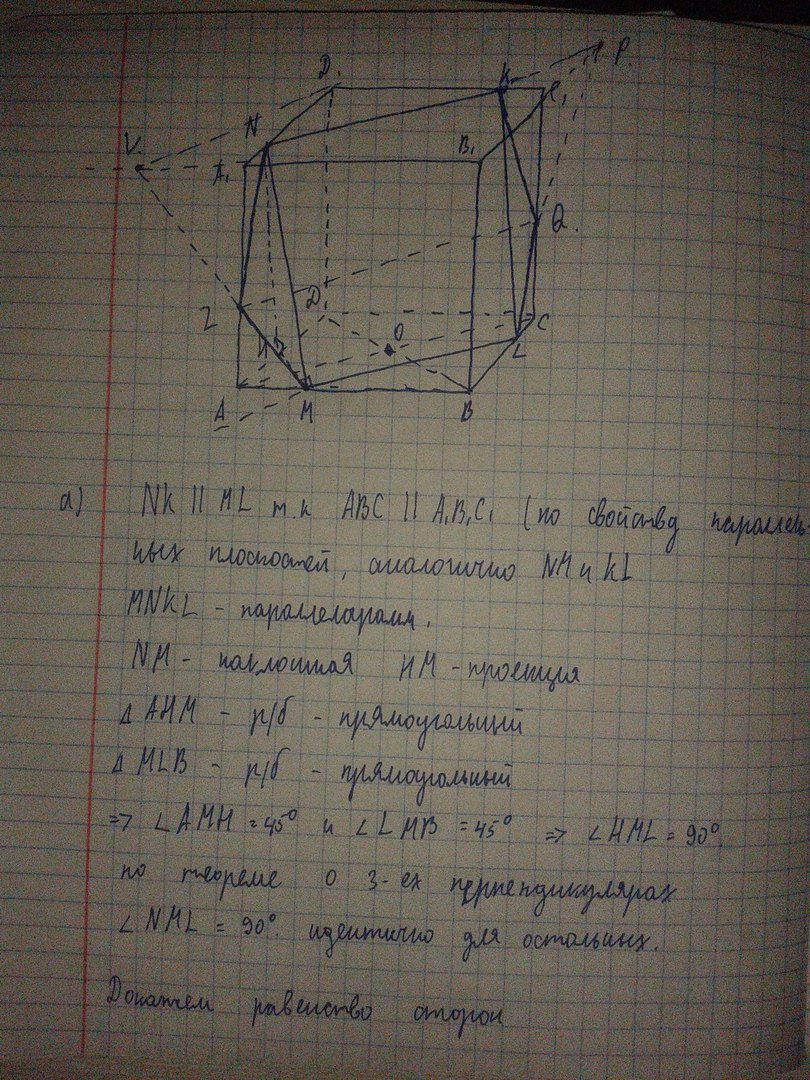 D₁
K
C₁
P.
N
V
A₁
B₁
Q.
Z
D
O
C
H
L
A
M
B
а) NK || ML т.к ABC || A₁B₁C₁ (по свойству параллель-
ных плоскостей, аналогично NM и KL
MNKL - параллеларамм.
NM - наклонная HM - проекция
Δ AHM - р/б - прямоугольный
Δ MLB - р/б - прямоугольный
=> ∠AMH = 45° и ∠LMB = 45° => ∠HML = 90°.
по теореме о 3-ех перпендикулярах
∠NML = 90°. идентично для остальных.
Докажем равенство сторон